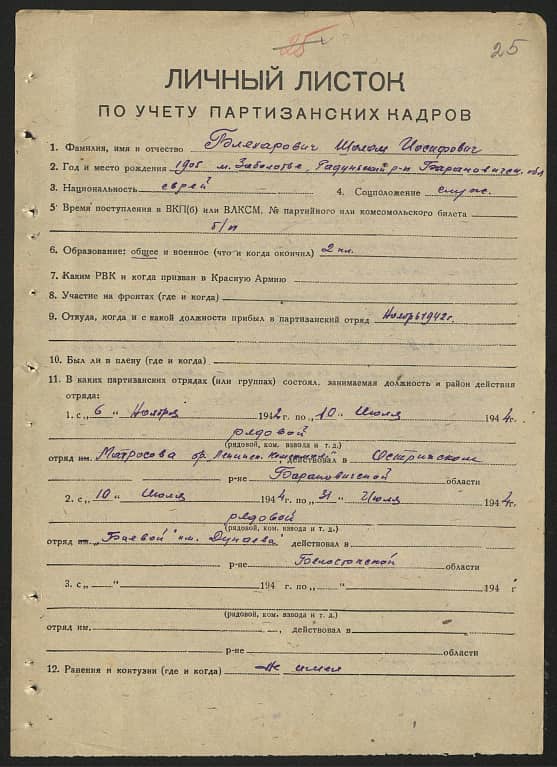 25 25
ЛИЧНЫЙ ЛИСТОК
ПО УЧЕТУ ПАРТИЗАНСКИХ КАДРОВ
1. Фамилия, имя и отчество Блехарович Шолом Иосифович
2. Год и место рождения 1905 м. Заболотье, Радунский р-н Баранович. обл
3. Национальность еврей 4. Соцположение служ.
5 Время поступления в ВКП(б) или ВЛКСМ, № партийного или комсомольского билета
б/п
6. Образование: общее и военное (что и когда окончил) 2 кл.
7. Каким РВК и когда призван в Красную Армию
8. Участие на фронтах (где и когда)
9. Откуда, когда и с какой должности прибыл в партизанский отряд Ноябрь 1942 г.
10. Был ли в плену (где и когда)
11. В каких партизанских отрядах (или группах) состоял, занимаемая должность и район действия
отряда:
1. с „ 6 “ Ноября 1942 г. по „ 10 “ Июля 1944 г.
рядовой
(рядовой, ком. взвода и т. д.)
отряд им. Матросова бр. Ленинск. Комсомол, действовал в
р-не Барановичской области
2. с „ 10 “ Июля 1944 г. по „ 31 “ Июля 1944 г.
рядовой
(рядовой, ком. взвода и т. д.)
отряд им. „Боевой" им. Дунаева действовал в
р-не Белостокской области
3. с „ “ 194 г. по „ “ 194 г
(рядовой, ком. взвода и т. д.)
отряд им. , действовал в
р-не области
12. Ранения и контузии (где и когда) Не имел